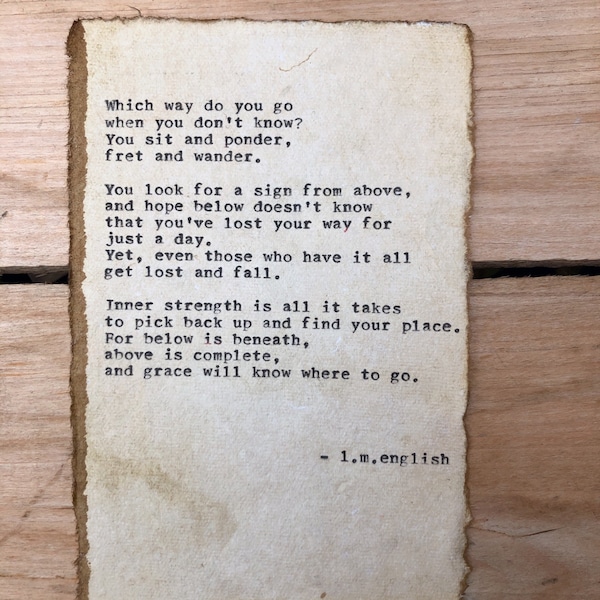 Which way do you go
when you don't know?
You sit and ponder,
fret and wander.
You look for a sign from above,
and hope below doesn't know
that you've lost your way for
just a day.
Yet, even those who have it all
get lost and fall.
Inner strength is all it takes
to pick back up and find your place.
For below is beneath,
above is complete,
and grace will know where to go.
- l.m.english